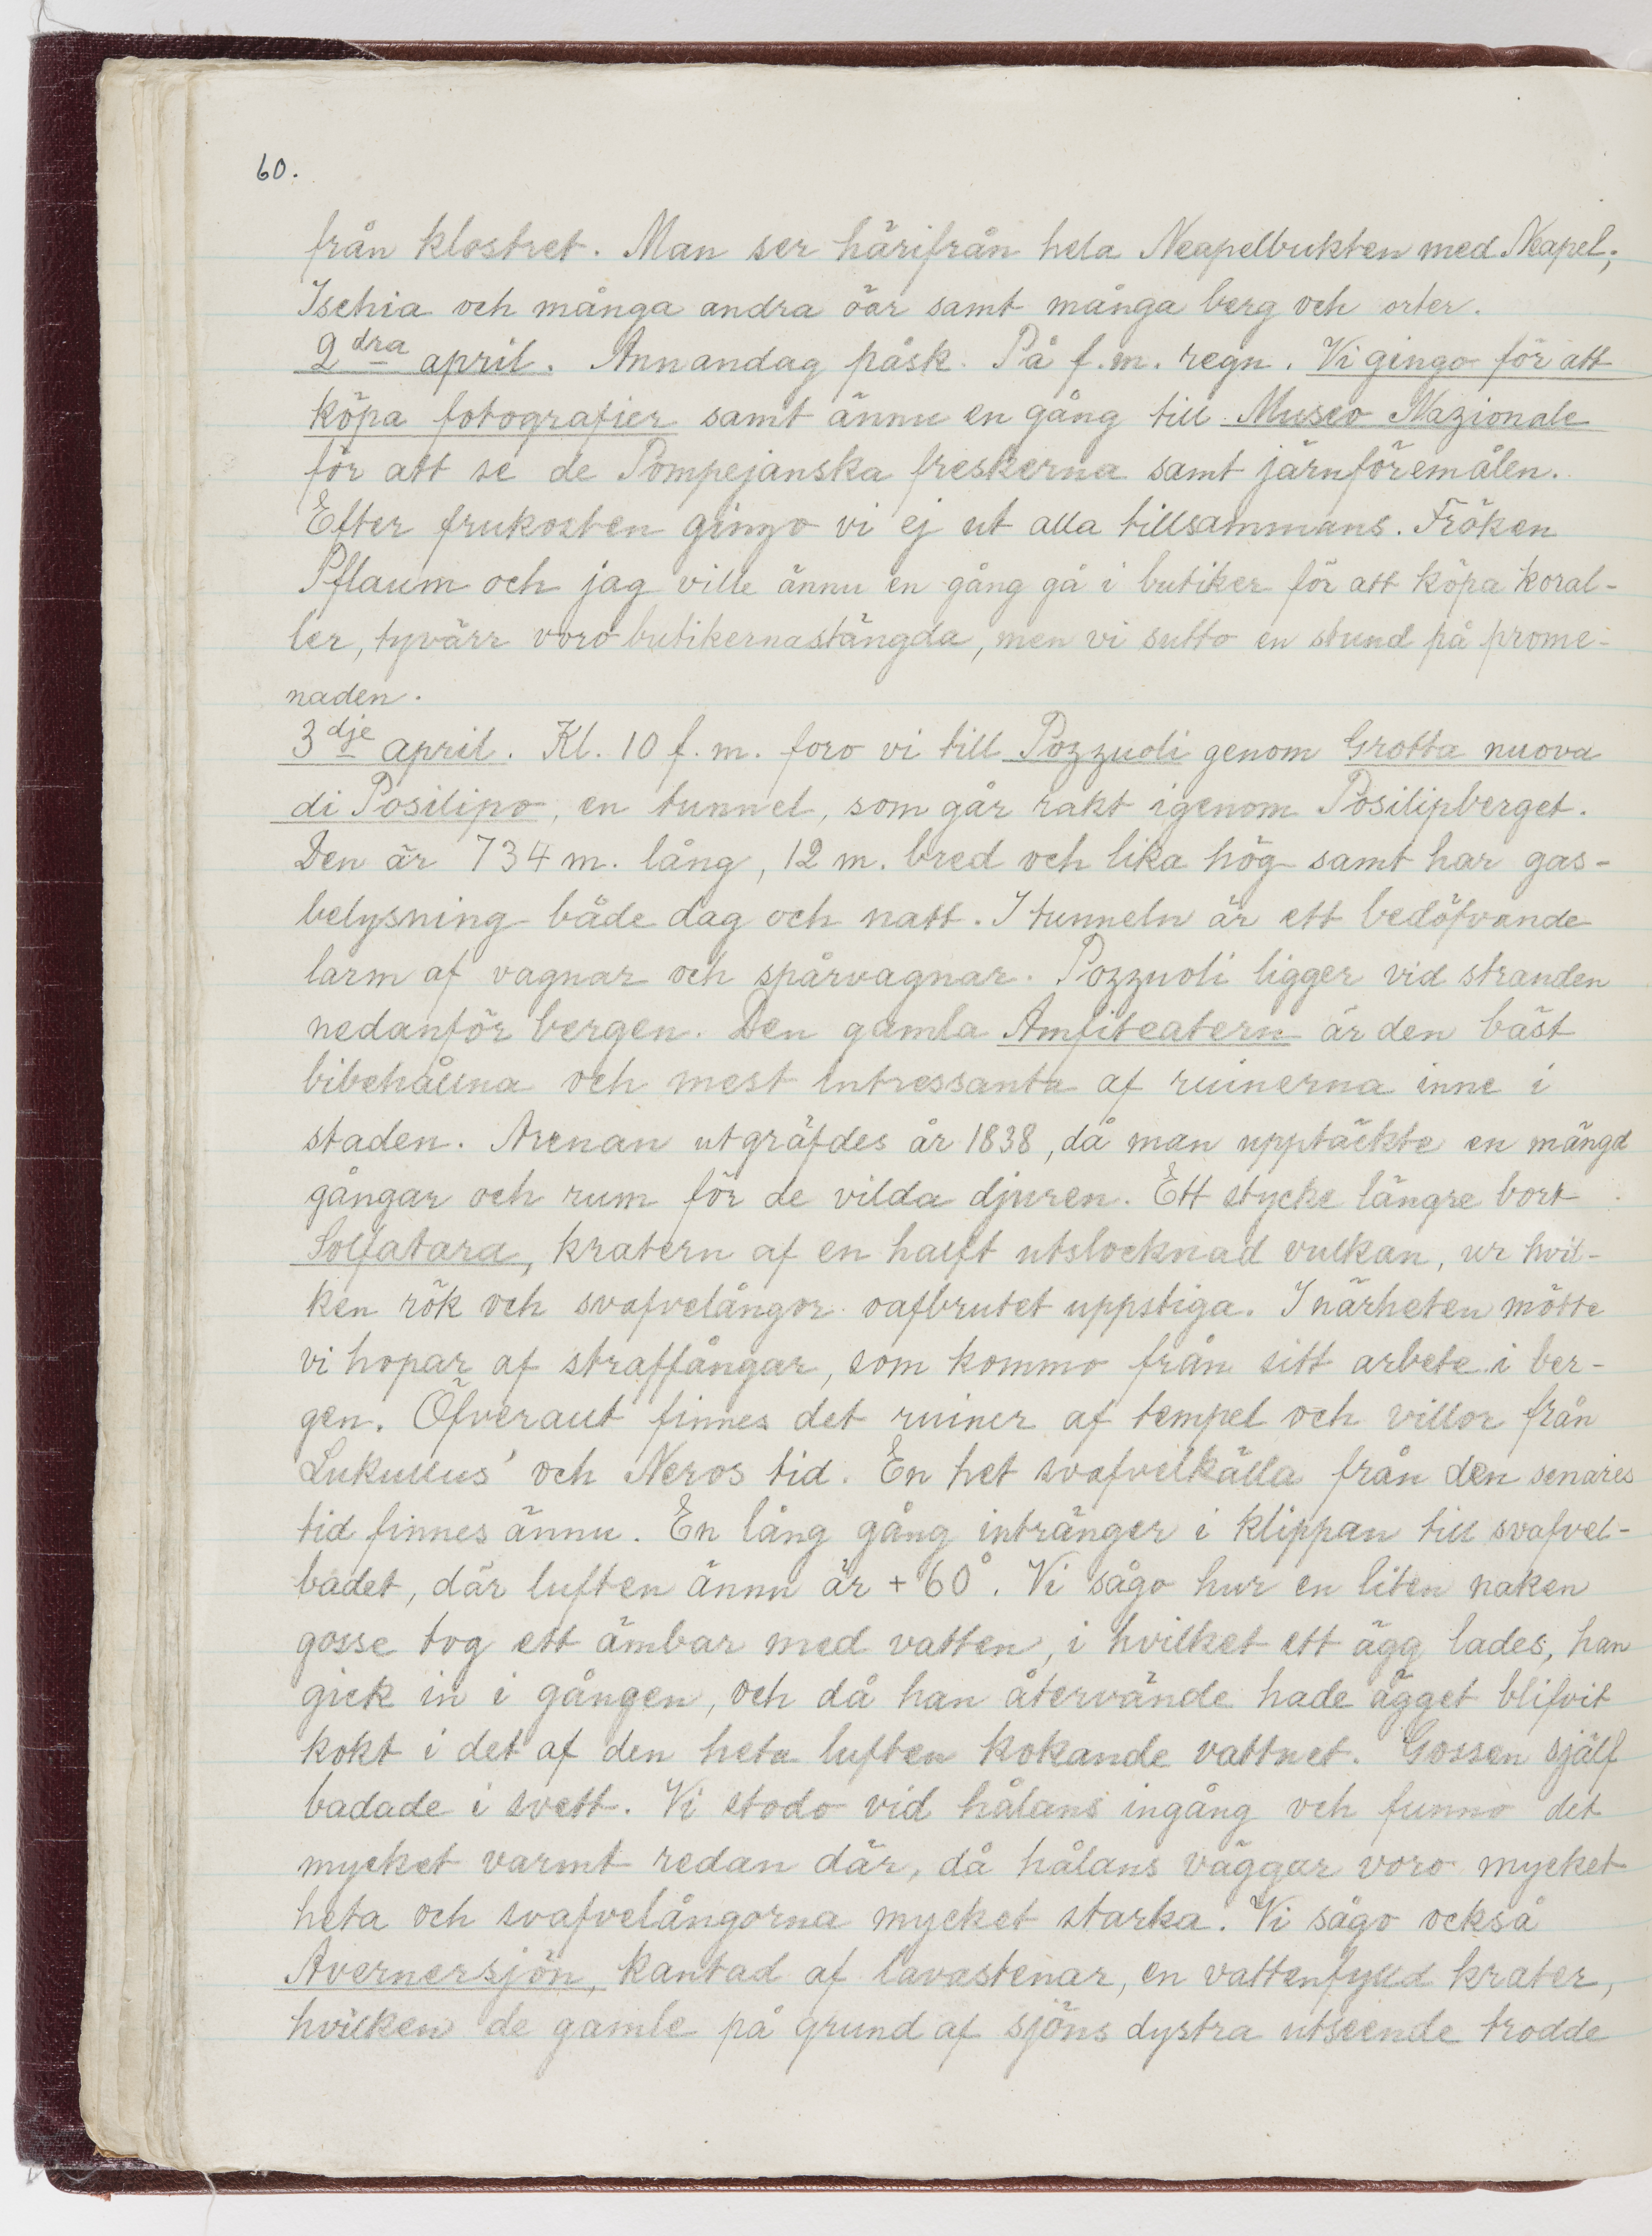 60.
från klostret. Man ser härifrån hela Neapelbukten med Neapel,
Ischia och många andra öar samt många berg och orter.
2dra april. Annandag påsk. På f.m. regn. Vi gingo för att
köpa fotografier samt ännu en gång till Museo Nazionale
för att se de Pompejanska freskerna samt järnföremålen.
Efter frukosten gingo vi ej ut alla tillsammans. Fröken
Pflaum och jag ville ännu en gång gå i butiker för att köpa koral-
ler, tyvärr voro butikerna stängda, men vi sutto en stund på prome-
naden.
3dje april. Kl. 10 f.m. foro vi till Pozzuoli genom Grotta nuova
di Posilipo, en tunnel, som går rakt igenom Posilipberget.
Den är 734 m. lång, 12 m. bred och lika hög samt har gas-
belysning både dag och natt. I tunneln är ett bedöfvande
larm af vagnar och spårvagnar. Pozzuoli ligger vid stranden
nedanför bergen. Den gamla Amfiteatern är den bäst
bibehållna och mest intressanta af ruinerna inne i
staden. Arenan utgräfdes år 1838, då man upptäckte en mängd
gångar och rum för de vilda djuren. Ett stycke längre bort
Solfatara, kratern af en halft utslocknad vulkan, ur hvil-
ken rök och svafvelångor oafbrutet uppstiga. I närheten mötte
vi hopar af straffångar, som kommo från sitt arbete i ber-
gen. Öfveraut finnes det ruiner af tempel och villor från
Lukullus' och Neros tid. En het svafvelkälla från den senares
tid finnes ännu. En lång gång intränger i klippan till svafvel-
badet, där luften ännu är + 60°. Vi sågo hur en liten naken
gosse tog ett ämbar med vatten, i hvilket ett ägg lades, han
gick in i gången, och då han återvände hade ägget blifvit
kokt i det af den heta luften kokande vattnet. Gossen själf
badade i svett. Vi stodo vid hålans ingång och funno det
mycket varmt redan där, då hålans väggar voro mycket
heta och svafvelångorna mycket starka. Vi sågo också
Avernersjön, kantad af lavastenar, en vattenfylld krater,
hvilken de gamle på grund af sjöns dystra utseende trodde